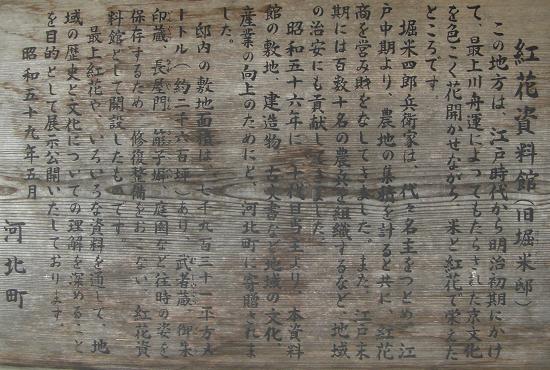 紅花資料館(旧堀米邸)
この地方は、江戸時代から明治初期にかけ
て、最上川舟運によってもたらされた京文化
を色こく花開かせながら 米と紅花で栄えた
ところです
堀米四郎兵衛家は、代々名主をつとめ 江
戸中期より、農地の集積を計ると共に、紅花
商を営み財をなしてきました。また、江戸末
期には百数十名の農兵を組織するなど、地域
の治安にも貢献してきました。
昭和五十六年に 十代目当主より、本資料
館の敷地 建造物 古文書など地域の文化、
産業の向上のためにと、河北町に寄贈されま
した。
邸内の敷地面積は、七千九百三十一平方メ
ートル(約二千六百坪)あり、武者蔵 御朱
印蔵 長屋門 塀 庭園など往時の姿を
保存するため 修復整備をおこない 紅花資
料館として開設したものです。
最上紅花や いろいろな資料を通して、地
域の歴史と文化についての理解を深めること
を目的として展示公開いたしております。
昭和五十九年五月
河北町